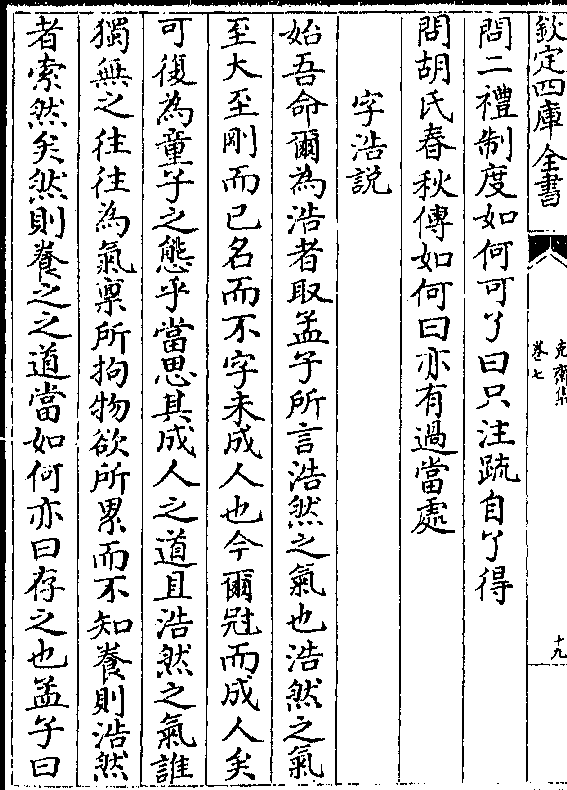 欽定四庫全書
克齋集
卷七
十九
問二禮制度如何可了曰只注疏自了得
問胡氏春秋傳如何曰亦有過當處
字浩説
始吾命爾為浩者取孟子所言浩然之氣也浩然之氣
至大至剛而已名而不字未成人也今爾冠而成人矣
可復為童子之態乎當思其成人之道且浩然之氣誰
獨無之往往為氣稟所拘物欲所累而不知養則浩然
者索然矣然則養之之道當如何亦曰存之也孟子曰